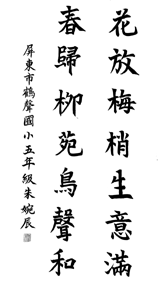 花放梅梢生意滿
春歸柳苑鳥聲和
屏東市鶴聲國小五年級朱婉辰